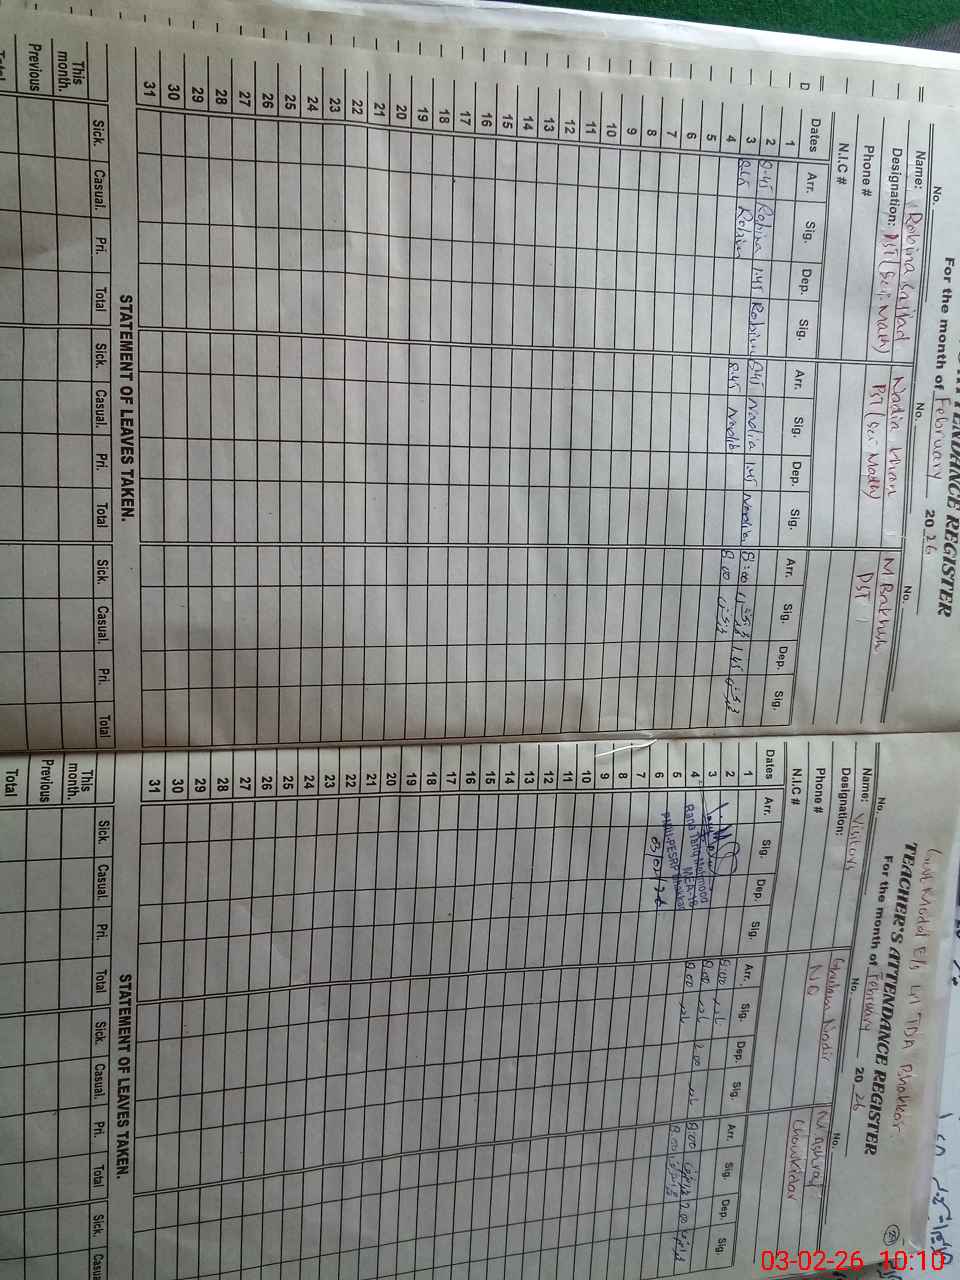 ATTENDANCE REGISTER
For the month of February 2026
No. No. No.
Name: Robina Sajjad Nadia Khan M. Bakhsh
Designation: PST (Sci. Math) PST (Sci. Math) PST
Phone #
N.I.C #
Dates Arr. Sig. Dep. Sig. Arr. Sig. Dep. Sig. Arr. Sig. Dep. Sig.
1
2 8:45 Robina 1:45 Robina 8:45 Nadia 1:45 Nadia 8:00 1:45
3 8:45 Robina 8:45 Nadia 8:00
4
5
6
7
8
9
10
11
12
13
14
15
16
17
18
19
20
21
22
23
24
25
26
27
28
29
30
31
STATEMENT OF LEAVES TAKEN.
Sick. Casual. Pri. Total Sick. Casual. Pri. Total Sick. Casual. Pri. Total
This month.
Previous
Total
Govt. Model E/S TDA Bhakkar.
TEACHER'S ATTENDANCE REGISTER
For the month of February 2026
No. No. No.
Name: Visitors Ghulam Nadir M Ashraf
Designation: NQ Chowkidar
Phone #
N.I.C #
Dates Arr. Sig. Dep. Sig. Arr. Sig. Dep. Sig. Arr. Sig. Dep. Sig.
1
2 8:00 نادر
3 8:00 نادر 2:00 نادر 8:00 2:00
4 8:00 نادر 8:00
Rana Tariq Mahmood
MEA-18
PMIU-PESRP Bhakkar
03/02/26
5
6
7
8
9
10
11
12
13
14
15
16
17
18
19
20
21
22
23
24
25
26
27
28
29
30
31
STATEMENT OF LEAVES TAKEN.
Sick. Casual. Pri. Total Sick. Casual. Pri. Total Sick. Casual.
This month.
Previous
Total
03-02-26 10:10